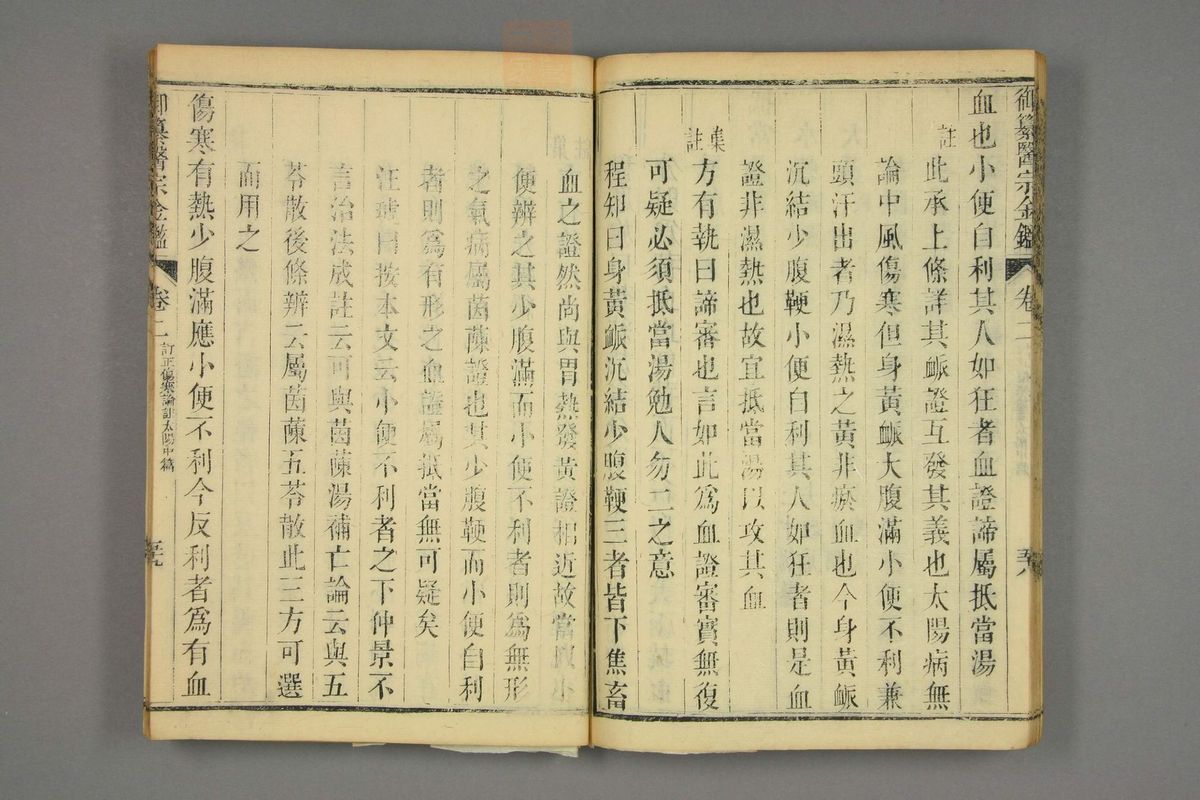 御纂醫宗金鑑 卷二 五十八
血也小便自利其人如狂者血證諦屬抵當湯
註
此承上條詳其脈證互發其義也太陽病無
論中風傷寒但身黃脈大腹滿小便不利兼
頭汗出者乃濕熱之黃非瘀血也今身黃脈
沉結少腹鞕小便自利其人如狂者則是血
證非濕熱也故宜抵當湯以攻其血
集註
方有執曰諦審也言如此爲血證審實無復
可疑必須抵當湯勉人勿二之意
程知曰身黃脈沉結少腹鞕三者皆下焦畜
血之證然尚與胃熱發黃證相近故當以小
便辨之其少腹滿而小便不利者則爲無形
之氣病屬茵蔯證也其少腹鞕而小便自利
者則爲有形之血證屬抵當無可疑矣
汪琥曰按本文云小便不利者之下仲景不
言治法成註云可與茵蔯湯補亡論云與五
苓散後條辨云屬茵蔯五苓散此三方可選
而用之
傷寒有熱少腹滿應小便不利今反利者爲有血
御纂醫宗金鑑 卷二 訂正傷寒論註太陽中篇 五十九